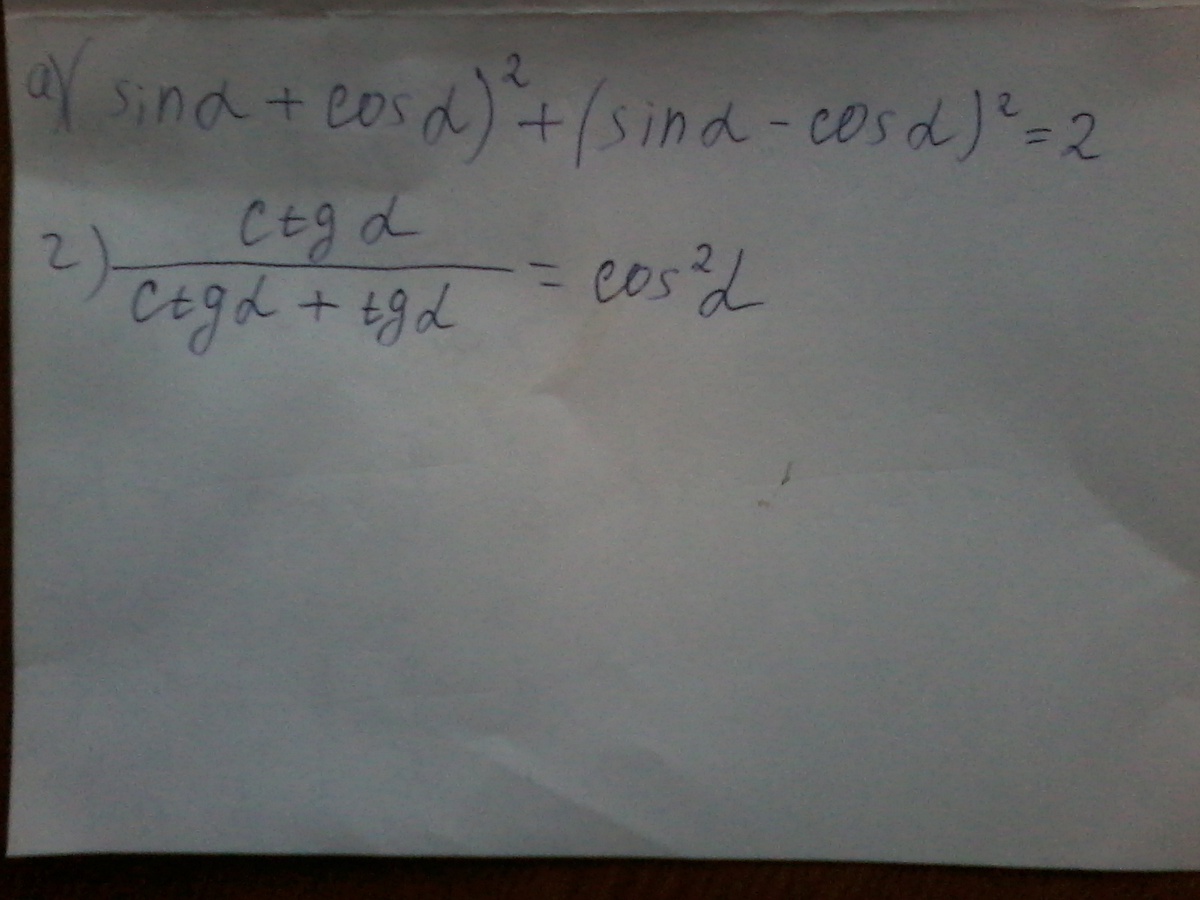 a) (sinα + cosα)² + (sinα - cosα)² = 2
2) ctgα / (ctgα + tgα) = cos²α